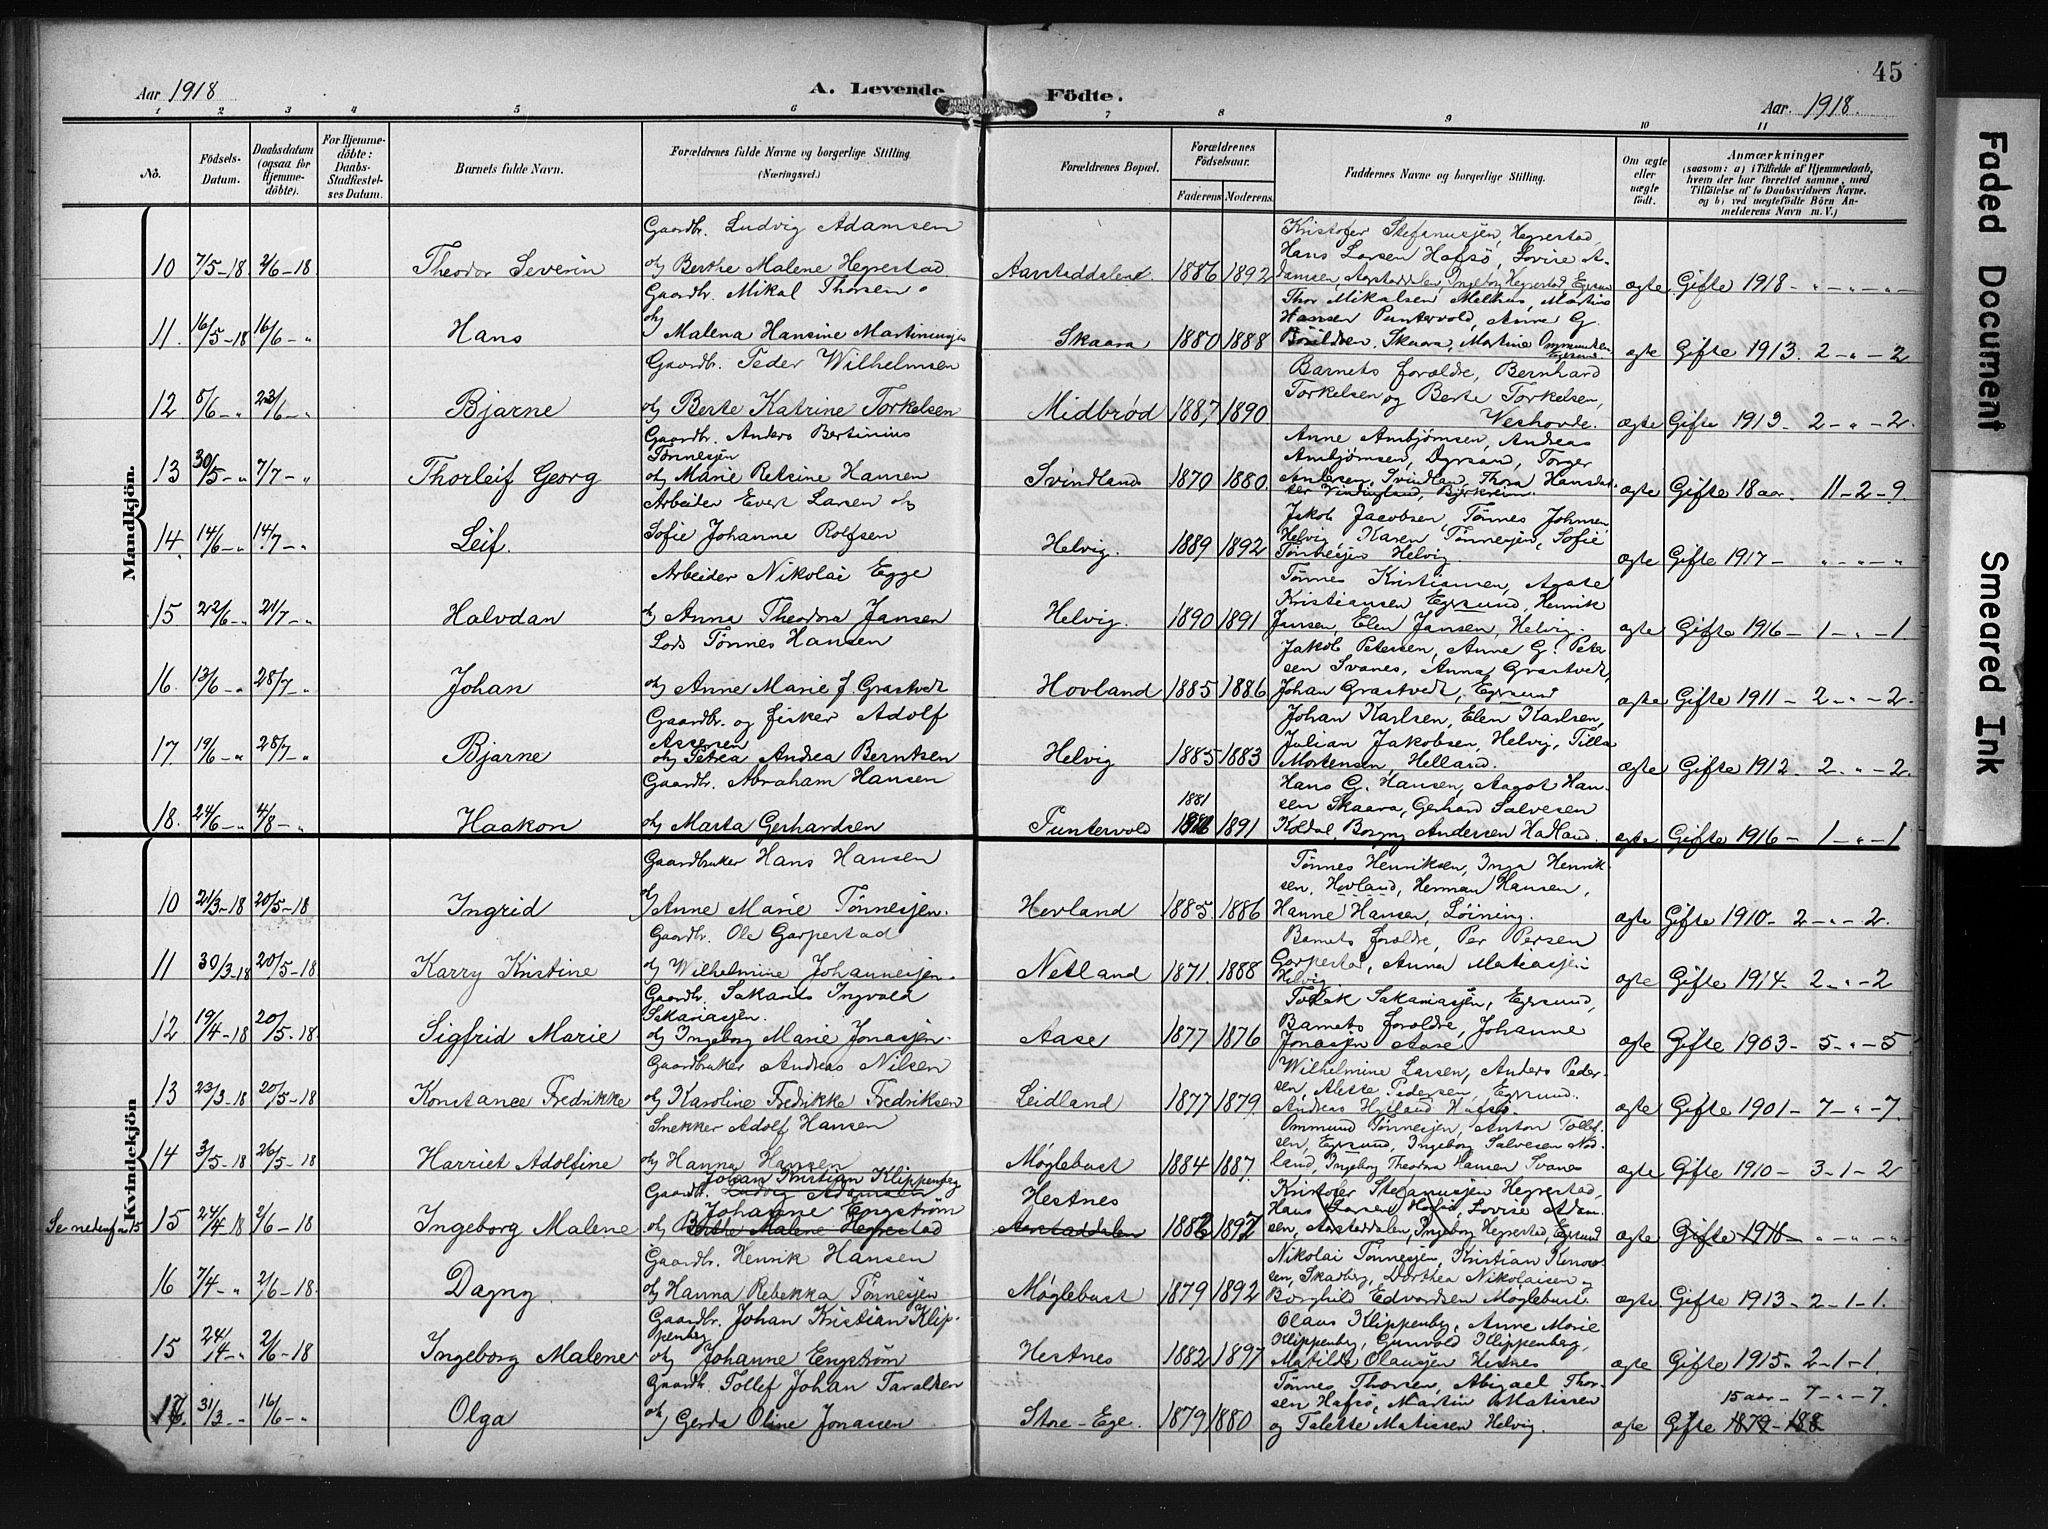 45
Aar 1918
A. Levende
Födte.
Aar. 1918.
1 2 3 4 5 6 7 8 9 10 11
No.
Födsels-Datum.
Daabsdatum (ogsaa for Hjemme-döbte).
For Hjemme-döbte: Daabs-Stadfæstelses Datum.
Barnets fulde Navn.
Forældrenes fulde Navne og borgerlige Stilling. (Næringsvei.)
Forældrenes Bopæl.
Forældrenes Födselsaar.
Faderens
Moderens
Faddernes Navne og borgerlige Stilling.
Om ægte eller uægte födt.
Anmærkninger
(saasom: a) i Tilfælde af Hjemmedaab,
hvem der har forrettet samme, med
Tilföielse af to Daabsvidners Navne,
og b) ved uægtefödte Börn An-
melderens Navn m. V.)
Mandkjön.
10 7/5-18 2/6-18 Theodor Severin Gaardbr. Ludvig Adamsen
og Berthe Malene Hegrestad Aarstaddalen. 1886 1892
Kristofer Stefanussen, Hegrestad,
Hans Larsen Hafsö, Lovise A-
damsen, Aarstaddalen, Ingeborg Hegrestad Egersund
ægte Gifte 1918 - " - " - " -
11. 16/5-18 16/6-" Hans Gaardbr. Mikal Thorsen
og Malena Hansine Martinusen Skaara 1880 1888
Thor Mikalsen Melhus, Martius
Hansen Puntervold, Anne G.
Skaara, Martine Ommundsen
Egersund.
ægte Gifte 1913. 2 - " - 2
12 8/6-" 23/6-" Bjarne Gaardbr. Peder Wilhelmsen
og Berte Katrine Torkelsen Midbrød 1887 1890
Barnets forældre, Bernhard
Torkelsen og Berte Torkelsen,
Veshovde.
ægte Gifte 1913- 2 - " - 2.
13 30/5-" 7/7-" Thorleif Georg Gaardbr. Anders Bertinius
Tønnesen
og Marie Retsine Hansen Svindland 1870 1880
Anne Ambjørnsen, Andreas
Ambjørnsen, Torger
Andersen, Svindlan, Thora
ægte Gifte 18 aar. 11 - 2 - 9.
14. 14/6-" 14/7-" Leif. Arbeider Evert Larsen og
Sofie Johanne Rolfsen Helvig. 1889 1892
Jakob Jacobsen, Tønnes Johnsen,
Helvig, Karen Tønnesen, Sofie
Tønnesen Helvig.
ægte Gifte 1917 - " - " - "
15 22/6-" 21/7-" Halvdan Arbeider Nikolai Egge
og Anna Theodora Jansen Helvig. 1890 1891
Tønnes Kristiansen, Agate
Kristiansen Egersund, Henrik
Jansen, Elen Jansen, Helvig.
ægte Gifte 1916 - 1 - " - 1.
16. 13/6-" 28/7-" Johan Lods Tønnes Hansen
og Anne Marie f. Grastvedt Hovland 1885 1886
Jakob Petersen, Anne G. Peter-
sen Svanes, Anna Grastvedt,
Johan Grastvedt, Egersund
ægte Gifte 1911 - 2 - " - 2.
17. 19/6-" 28/7-" Bjarne Gaardbr. og fisker Adolf
Assersen
og Petrea Andrea Berntsen Helvig 1885 1883
Johan Karlsen, Elen Karlsen,
Julian Jakobsen, Helvig, Tilla
Mortensen, Helland.
ægte Gifte 1912. 2. " - 2.
18. 24/6-" 4/8-" Haakon Gaardbr. Abraham Hansen
og Marta Gerhardsen Puntervold 1881 1891
Hans G. Hansen, Aagot Han-
sen Skaara, Gerhard Salvesen
Koldal, Borgny Andersen Hadland.
ægte Gifte 1916 - 1 - " - 1
Kvindekjön
10 21/3-18 20/5-18 Ingrid Gaardbruker Hans Hansen
og Anne Marie Tønnesen. Hovland 1885. 1886
Tønnes Henriksen, Inga Henrik-
sen, Hovland, Herman Hansen,
Hanne Hansen, Løining.
ægte Gifte 1910 - 2 - " - 2.
11 30/3-18 20/5-18 Karry Kristine Gaardbr. Ole Garpestad
og Wilhelmine Johannesen. Netland 1871. 1888
Barnets forældre, Per Persen
Garpestad, Anna Matiassen
Helvig
ægte Gifte 1914. 2 - " - 2
12 19/4-18 20/5-18. Sigfrid Marie Gaardbr. Sakarias Ingvald
Sakariasen.
og Ingeborg Marie Jonassen. Aase 1877 1876
Sakariasen, Egersund,
Barnets forældre, Johanne
Jonassen Aase.
ægte Gifte 1903 - 5 - " - 5
13 23/3-18 20/5-18 Konstance Fredrikke Gaardbruker Andreas Nilsen
og Karoline Fredrikke Fredriksen Leidland 1877 1879.
Wilhelmine Larsen, Anders Peder-
sen, Alette Pedersen, Egersund.
Andreas Hetland Hafsö.
ægte Gifte 1901 - 7 - " - 7.
14 3/5-18 26/5-18 Harriet Adolfine Snekker Adolf Hansen
og Hanna Hansen Møglebust 1884 1887.
Ommund Tønnesen, Anton Tollef-
sen, Egersund, Ingeborg Salvesen Nod-
land, Ingeborg Theodora Hansen Svanes
ægte Gifte 1910 - 3 - 1 - 2
Se nedenfor 15 15 24/4-18 2/6-18 Ingeborg Malene Johan Kristian Klippenberg
Gaardbr. Ludvig Adamsen
Johanne Engström
og Berthe Malene Hegrestad
Hestnes
Aarstaddalen 1882 1897
Kristofer Stefanussen Hegrestad,
Hans Larsen Hafsö, Lovise Adam-
sen, Aarstaddalen, Ingeborg Hegrestad, Egersund
ægte Gifte 1918 - " - " - "
16 7/4-" 2/6-18 Dagny. Gaardbr. Henrik Hansen
og Hanna Rebekka Tønnesen Møglebust 1879 1892
Nikolai Tønnesen, Kristian
Skadberg, Dorthea Nikolaisen og
Borghild Edvardsen Møglebust.
ægte. Gifte 1913 - 2 - 1 - 1.
15 24/4-" 2/6-18 Ingeborg Malene Gaardbr. Johan Kristian Klip-
penberg
og Johanne Engstrøm Hestnes 1882 1897
Olaus Klippenberg, Anne Marie
Klippenberg, Gunvald Klippenberg,
Matilde Olaussen Hestnes
ægte Gifte 1915 - 2 - 1 - 1.
17. 31/3-" 16/6-" Olga Gaardbr. Tollef Johan Taraldsen
og Gerda Oline Jonassen Store-Ege. 1879 1880
Tønnes Thorsen, Abigael Thor-
sen Hafsö, Martin Matissen
og Talette Matissen Helvig.
15 aar - 7 - " - 7.
ægte Gifte 1879 - 188
Faded Document
Smeared Ink